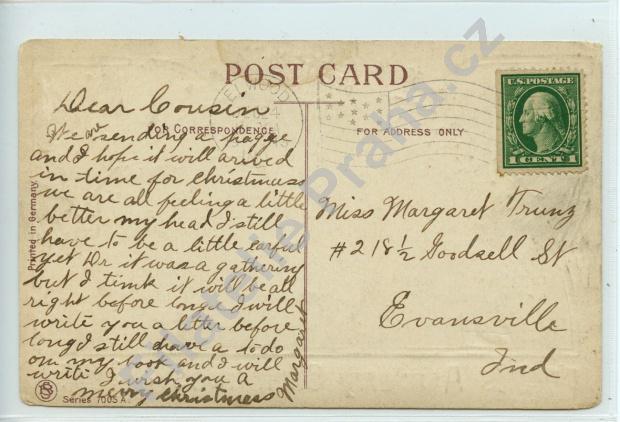 POST CARD
FOR CORRESPONDENCE
FOR ADDRESS ONLY
Dear Cousin
We are sending a
and I hope it will arrived
in time for christmass
we are all feeling a little
better my head I still
have to be a little carful
yet Dr it was a gathering
but I time it will be all
right before long. I will
write you a letter before
long I still have a todo
on my book and I will
write I wish you a
merry christmess
Margaret
Miss Margaret Trunz
#218½ Goodsell St
Evansville
Ind
U.S. POSTAGE
1 CENT 1
Printed in Germany
Series 7005 A
Filatelie Praha.cz